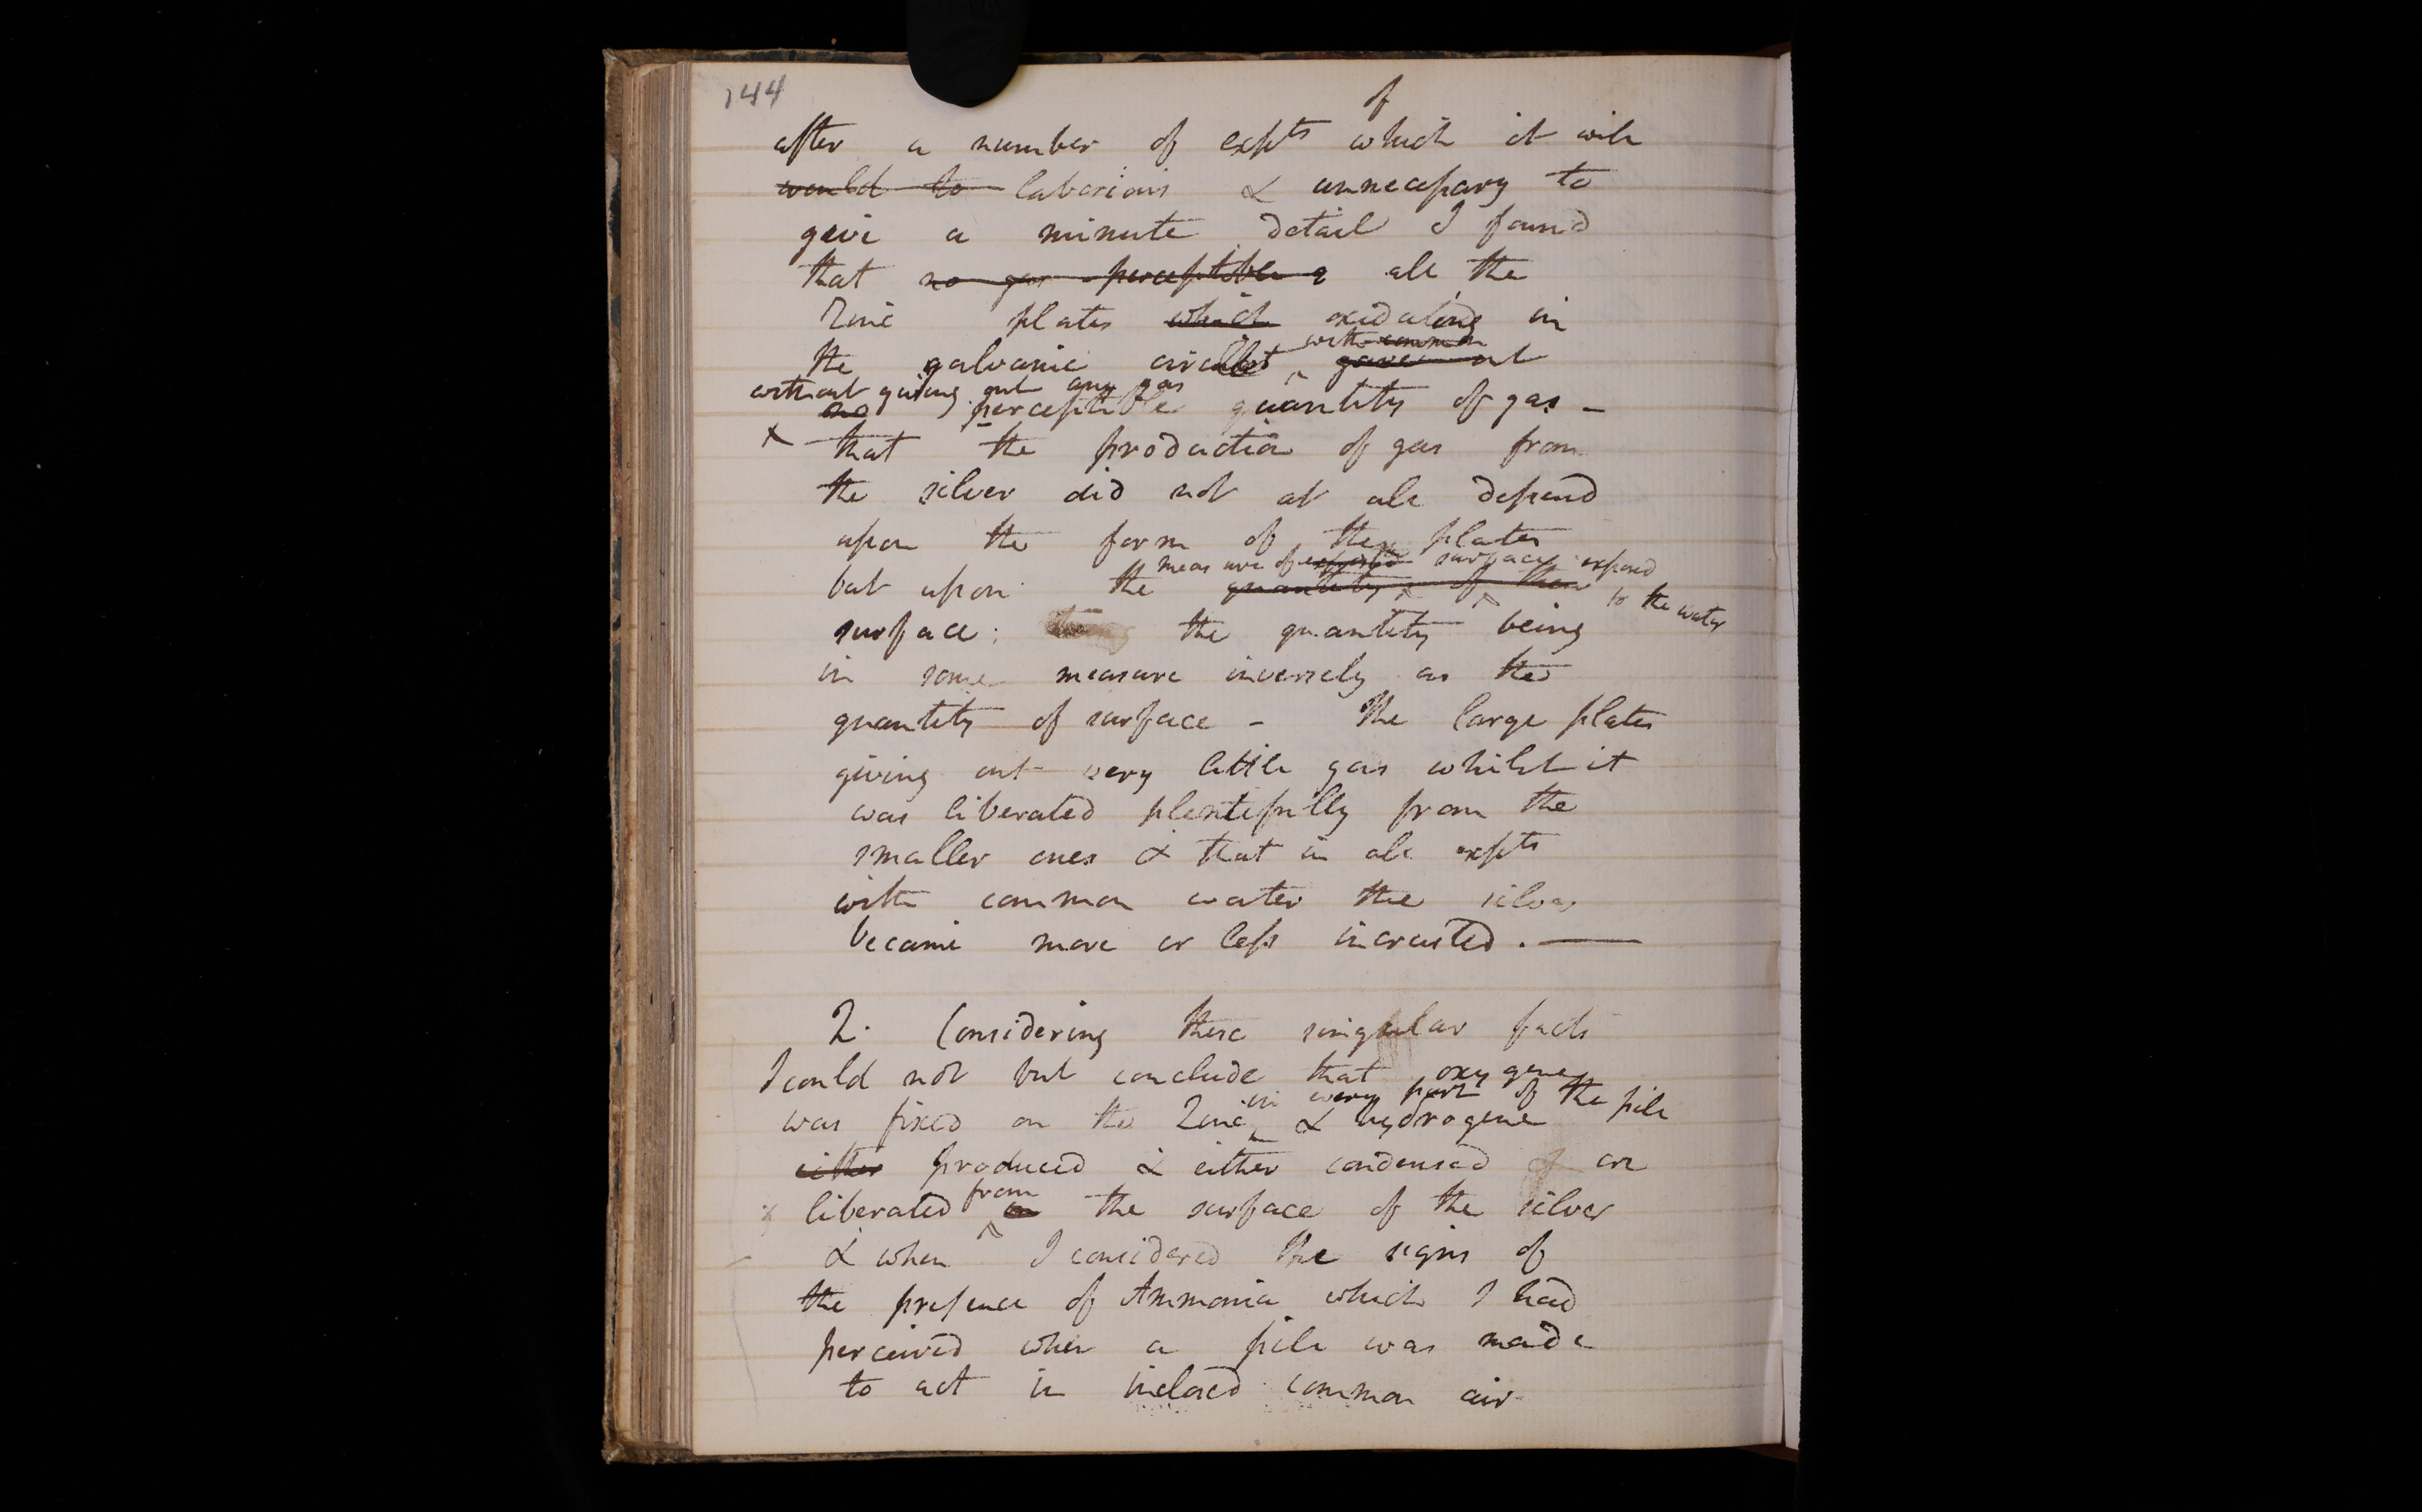 144
of
after a number of expts which it will
would to laborious & unnecessary to
give a minute detail I found
that no gas perceptible all the
Zinc plates which oxidating in
with common
the galvanic circuit gave out
without giving out any gas
no perceptible quantity of gas -
that the production of gas from
the silver did not at all depend
upon the form of the plates
measure of exposed surface exposed
but upon the quantity of the to the water
surface: the quantity being
in some measure inversely as the
quantity of surface - The large plates
giving out very little gas whilst it
was liberated plentifully from the
smaller ones & that in all expts
with common water the silver
became more or less incrusted. —
2. Considering these singular facts
I could not but conclude that oxygene
in every part of the pile
was fixed on the Zinc & hydrogene
either produced & either condensed on
from
liberated on the surface of the silver
& when I considered the signs of
the presence of Ammonia which I had
perceived when a pile was made
to act in inclosed common air